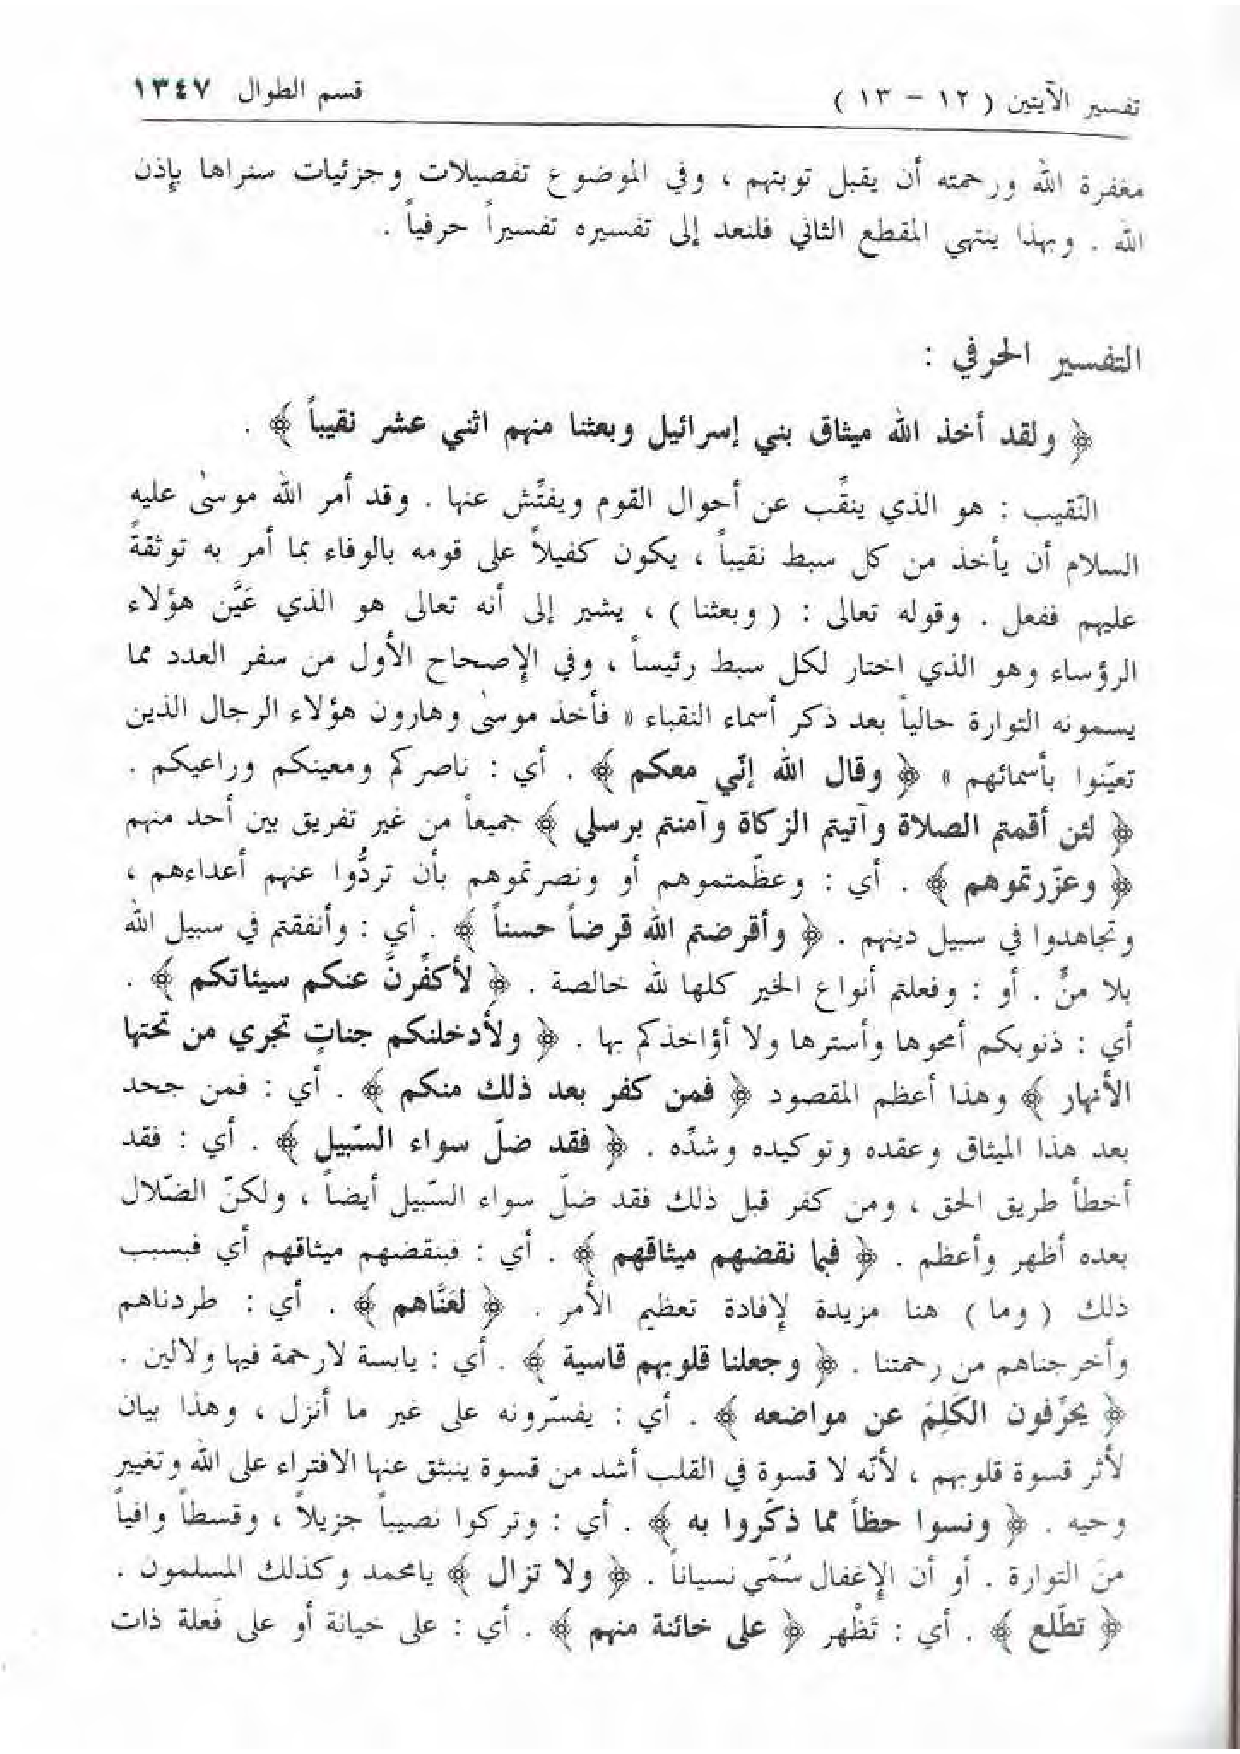 تفسير الآيتين ( ١٢ - ١٣ ) قسم الطوال ١٣٤٧
مغفرة الله ورحمته أن يقبل توبتهم ، وفي الموضوع تفصيلات وجزئيات سنراها بإذن
الله . وبهذا ينتهي المقطع الثاني فلنعد إلى تفسيره تفسيراً حرفياً .
التفسير الحرفي :
﴿ ولقد أخذ الله ميثاق بني إسرائيل وبعثنا منهم اثني عشر نقيباً ﴾ .
النّقيب : هو الذي ينقّب عن أحوال القوم ويفتّش عنها . وقد أمر الله موسىٰ عليه
السلام أن يأخذ من كل سبط نقيباً ، يكون كفيلاً على قومه بالوفاء بما أمر به توثقةً
عليهم ففعل . وقوله تعالى : ( وبعثنا ) ، يشير إلى أنه تعالى هو الذي عَيَّن هؤلاء
الرؤساء وهو الذي اختار لكل سبط رئيساً ، وفي الإصحاح الأول من سفر العدد مما
يسمونه التوارة حالياً بعد ذكر أسماء النقباء « فأخذ موسىٰ وهارون هؤلاء الرجال الذين
تعيّنوا بأسمائهم » ﴿ وقال الله إنّي معكم ﴾ . أي : ناصركم ومعينكم وراعيكم .
﴿ لئن أقمتم الصلاة وآتيتم الزكاة وآمنتم برسلي ﴾ جميعاً من غير تفريق بين أحد منهم
﴿ وعزّرتموهم ﴾ . أي : وعظّمتموهم أو ونصرتموهم بأن تردُّوا عنهم أعداءهم ،
وتجاهدوا في سبيل دينهم . ﴿ وأقرضتم الله قرضاً حسناً ﴾ . أي : وأنفقتم في سبيل الله
بلا منٍّ . أو : وفعلتم أنواع الخير كلها لله خالصة . ﴿ لأكفِّرنَّ عنكم سيئاتكم ﴾ .
أي : ذنوبكم أمحوها وأسترها ولا أؤاخذكم بها . ﴿ ولأدخلنكم جناتٍ تجري من تحتها
الأنهار ﴾ وهذا أعظم المقصود ﴿ فمن كفر بعد ذلك منكم ﴾ . أي : فمن جحد
بعد هذا الميثاق وعقده وتوكيده وشدّه . ﴿ فقد ضلّ سواء السّبيل ﴾ . أي : فقد
أخطأ طريق الحق ، ومن كفر قبل ذلك فقد ضلّ سواء السّبيل أيضاً ، ولكنّ الضّلال
بعده أظهر وأعظم . ﴿ فبما نقضهم ميثاقهم ﴾ . أي : فبنقضهم ميثاقهم أي فبسبب
ذلك ( وما ) هنا مزيدة لإفادة تعظيم الأمر . ﴿ لعَنَّاهم ﴾ . أي : طردناهم
وأخرجناهم من رحمتنا . ﴿ وجعلنا قلوبهم قاسية ﴾ . أي : يابسة لارحمة فيها ولالين .
﴿ يحرّفون الكَلِمَ عن مواضعه ﴾ . أي : يفسّرونه على غير ما أنزل ، وهذا بيان
لأثر قسوة قلوبهم ، لأنّه لا قسوة في القلب أشد من قسوة ينبثق عنها الافتراء على الله وتغيير
وحيه . ﴿ ونسوا حظاً مما ذكّروا به ﴾ . أي : وتركوا نصيباً جزيلاً ، وقسطاً وافياً
منَ التوارة . أو أن الإغفال سُمّي نسياناً . ﴿ ولا تزال ﴾ يامحمد وكذلك المسلمون .
﴿ تطّلع ﴾ . أي : تَظْهر ﴿ على خائنة منهم ﴾ . أي : على خيانة أو على فَعلة ذات